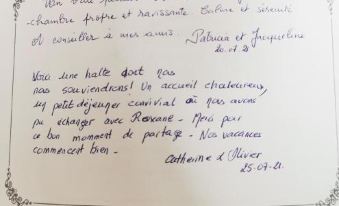 chambre propre et ravissante. Calme et sérénité
et conseiller à mes amis. Patricia et Jacqueline
20.07.21
Voici une halte dont nous
nous souviendrons! Un accueil chaleureux,
un petit déjeuner convivial où nous avons
pu échanger avec Roseane. Merci pour
ce bon moment de partage. Nos vacances
commencent bien.
Catherine & Olivier
25-07-21.